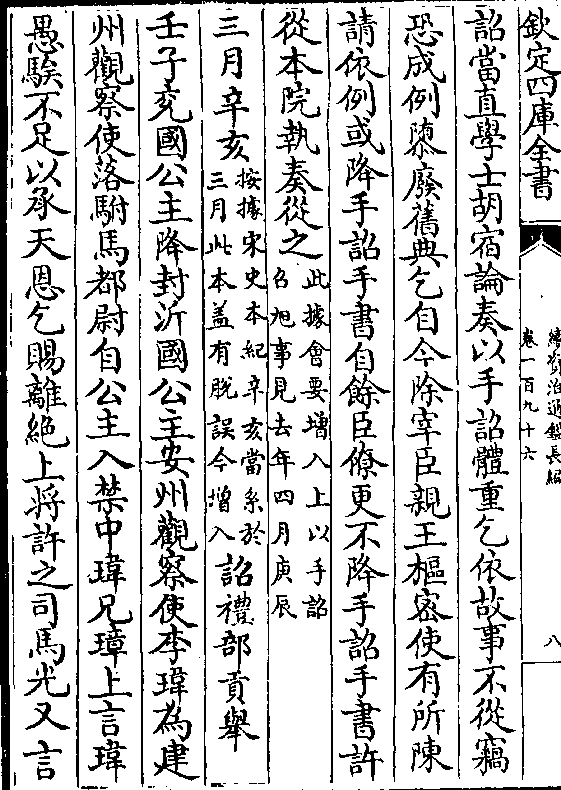 欽定四庫全書
續資治通鑑長編
卷一百九十六
八
詔當直學士胡宿論奏以手詔體重乞依故事不從竊
恐成例隳廢舊典乞自今除宰臣親王樞密使有所陳
請依例或降手詔手書自餘臣僚更不降手詔手書許
從本院執奏從之
此據會要增入上以手詔
召旭事見去年四月庚辰
三月辛亥
按據宋史本紀辛亥當系於
三月此本蓋有脱誤今增入
詔禮部貢舉
壬子兖國公主降封沂國公主安州觀察使李瑋為建
州觀察使落駙馬都尉自公主入禁中瑋兄璋上言瑋
愚騃不足以承天恩乞賜離絶上將許之司馬光又言